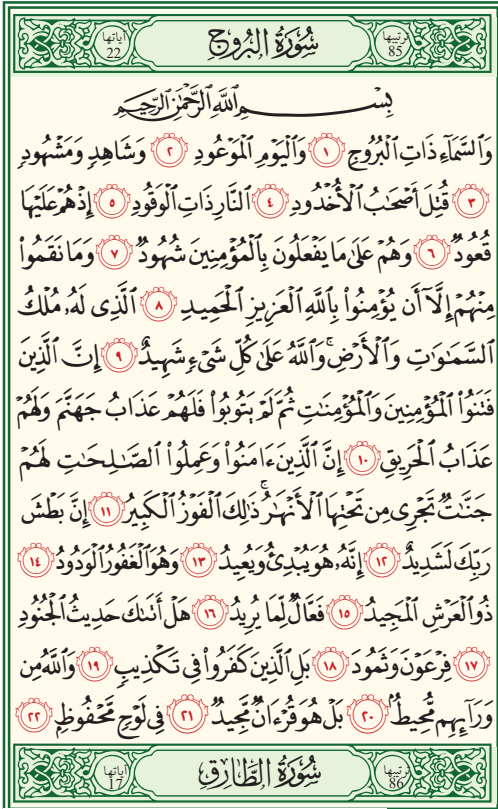 ترتيبها 85 سُورَةُ الْبُرُوجِ آياتها 22
بِسْمِ ٱللَّهِ ٱلرَّحْمَٰنِ ٱلرَّحِيمِ
وَٱلسَّمَآءِ ذَاتِ ٱلْبُرُوجِ ١ وَٱلْيَوْمِ ٱلْمَوْعُودِ ٢ وَشَاهِدٍ وَمَشْهُودٍ
٣ قُتِلَ أَصْحَٰبُ ٱلْأُخْدُودِ ٤ ٱلنَّارِ ذَاتِ ٱلْوَقُودِ ٥ إِذْ هُمْ عَلَيْهَا
قُعُودٌ ٦ وَهُمْ عَلَىٰ مَا يَفْعَلُونَ بِٱلْمُؤْمِنِينَ شُهُودٌ ٧ وَمَا نَقَمُوا۟
مِنْهُمْ إِلَّآ أَن يُؤْمِنُوا۟ بِٱللَّهِ ٱلْعَزِيزِ ٱلْحَمِيدِ ٨ ٱلَّذِى لَهُۥ مُلْكُ
ٱلسَّمَٰوَٰتِ وَٱلْأَرْضِ ۚ وَٱللَّهُ عَلَىٰ كُلِّ شَىْءٍ شَهِيدٌ ٩ إِنَّ ٱلَّذِينَ
فَتَنُوا۟ ٱلْمُؤْمِنِينَ وَٱلْمُؤْمِنَٰتِ ثُمَّ لَمْ يَتُوبُوا۟ فَلَهُمْ عَذَابُ جَهَنَّمَ وَلَهُمْ
عَذَابُ ٱلْحَرِيقِ ١٠ إِنَّ ٱلَّذِينَ ءَامَنُوا۟ وَعَمِلُوا۟ ٱلصَّٰلِحَٰتِ لَهُمْ
جَنَّٰتٌ تَجْرِى مِن تَحْتِهَا ٱلْأَنْهَٰرُ ۚ ذَٰلِكَ ٱلْفَوْزُ ٱلْكَبِيرُ ١١ إِنَّ بَطْشَ
رَبِّكَ لَشَدِيدٌ ١٢ إِنَّهُۥ هُوَ يُبْدِئُ وَيُعِيدُ ١٣ وَهُوَ ٱلْغَفُورُ ٱلْوَدُودُ ١٤
ذُو ٱلْعَرْشِ ٱلْمَجِيدُ ١٥ فَعَّالٌ لِّمَا يُرِيدُ ١٦ هَلْ أَتَىٰكَ حَدِيثُ ٱلْجُنُودِ
١٧ فِرْعَوْنَ وَثَمُودَ ١٨ بَلِ ٱلَّذِينَ كَفَرُوا۟ فِى تَكْذِيبٍ ١٩ وَٱللَّهُ مِن
وَرَآئِهِم مُّحِيطٌۢ ٢٠ بَلْ هُوَ قُرْءَانٌ مَّجِيدٌ ٢١ فِى لَوْحٍ مَّحْفُوظٍۭ ٢٢
ترتيبها 86 سُورَةُ الطَّارِقِ آياتها 17